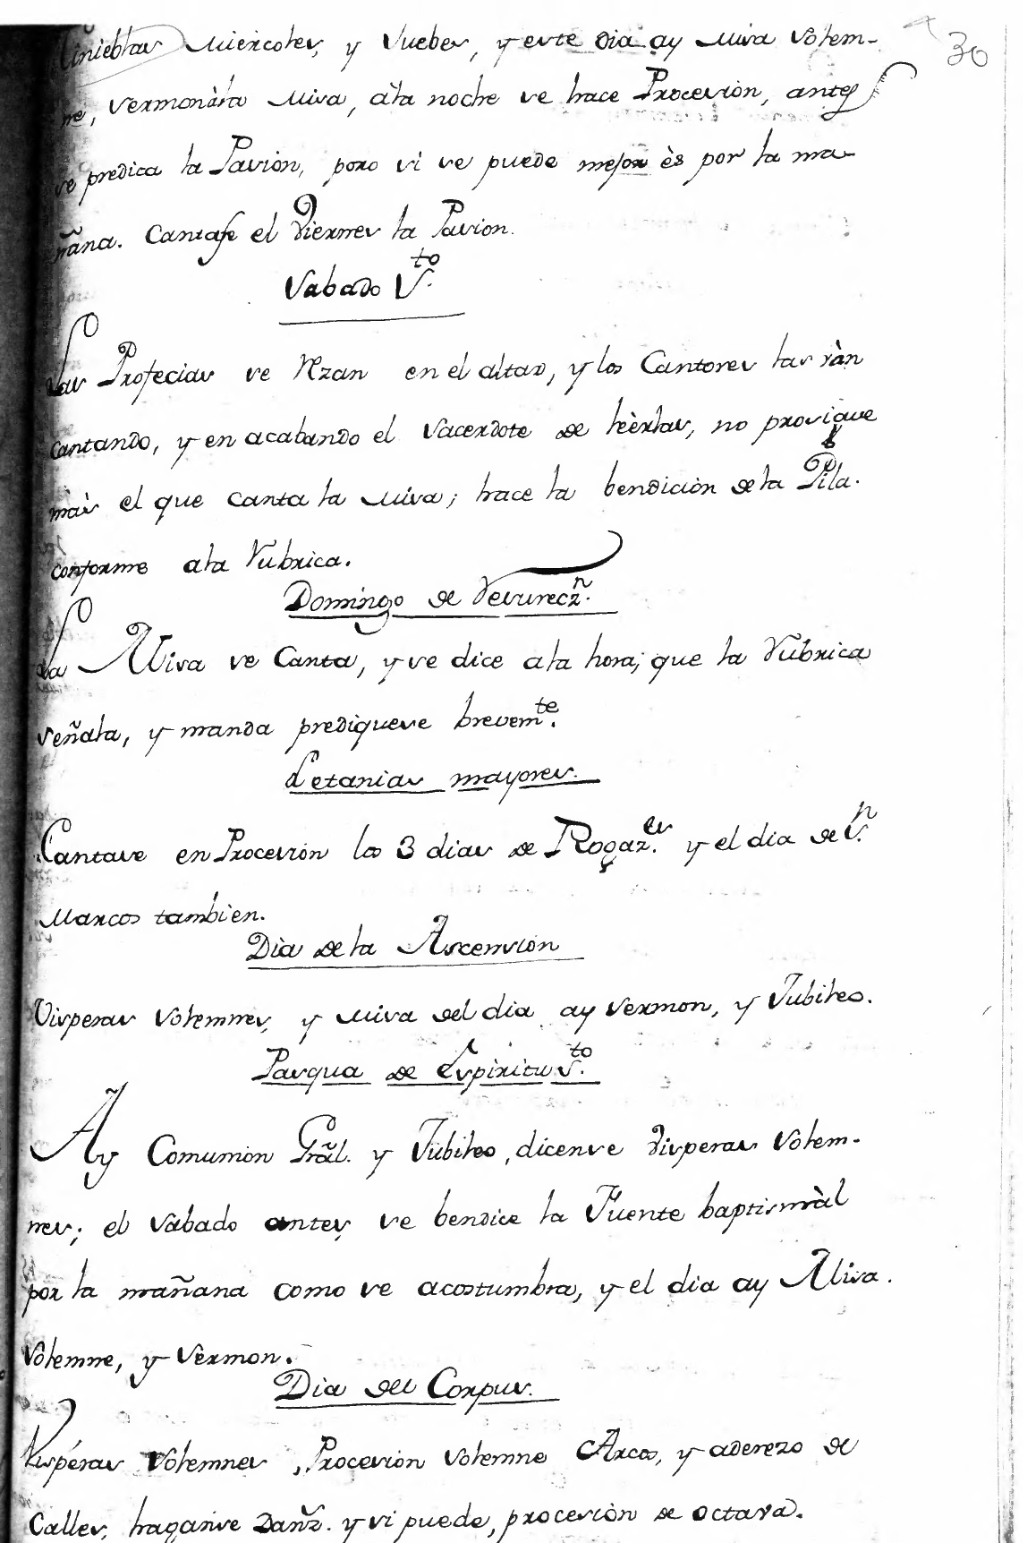 30
tinieblas Miercoles, y Juebes, y este dia ay Misa solem-
ne, sermonàla Misa, àla noche se hace Procesion, antes
se predica la Pasion, pero si se puede mejor ès por la ma-
ñana. Cantase el Viernes la Pasion.
Sabado S.to
Las Profecias se Rezan en el altar, y los Cantores las ràn
cantando, y en acabando el Sacerdote de leèrlas, no prosigue
màs el que canta la Misa; hace la bendiciòn de la Pila.
conforme ala Rubrica.
Domingo de Resurecz.n
La Misa se Canta, y se dice a la hora, que la Rubrica
señala, y manda prediquese brevem.te
Letanias mayores.
Cantase en Procesion los 3 dias de Rogaz.es y el dia de S.n
Marcos tambien.
Dia de la Ascension
Visperas solemnes, y Misa del dia ay sermon, y Jubileo.
Pasqua de Espiritu S.to
Ay Comunion Grãl. y Jubileo, dicense Visperas solem-
nes; el sabado antes, se bendice la Fuente baptismàl
por la mañana como se acostumbra, y el dia ay Misa.
solemne, y sermon.
Dia del Corpus.
Vispéras solemnes, Procesion solemne Arcos, y aderezo de
Calles, haganse Danz.s y si puede, procesiòn de octava.